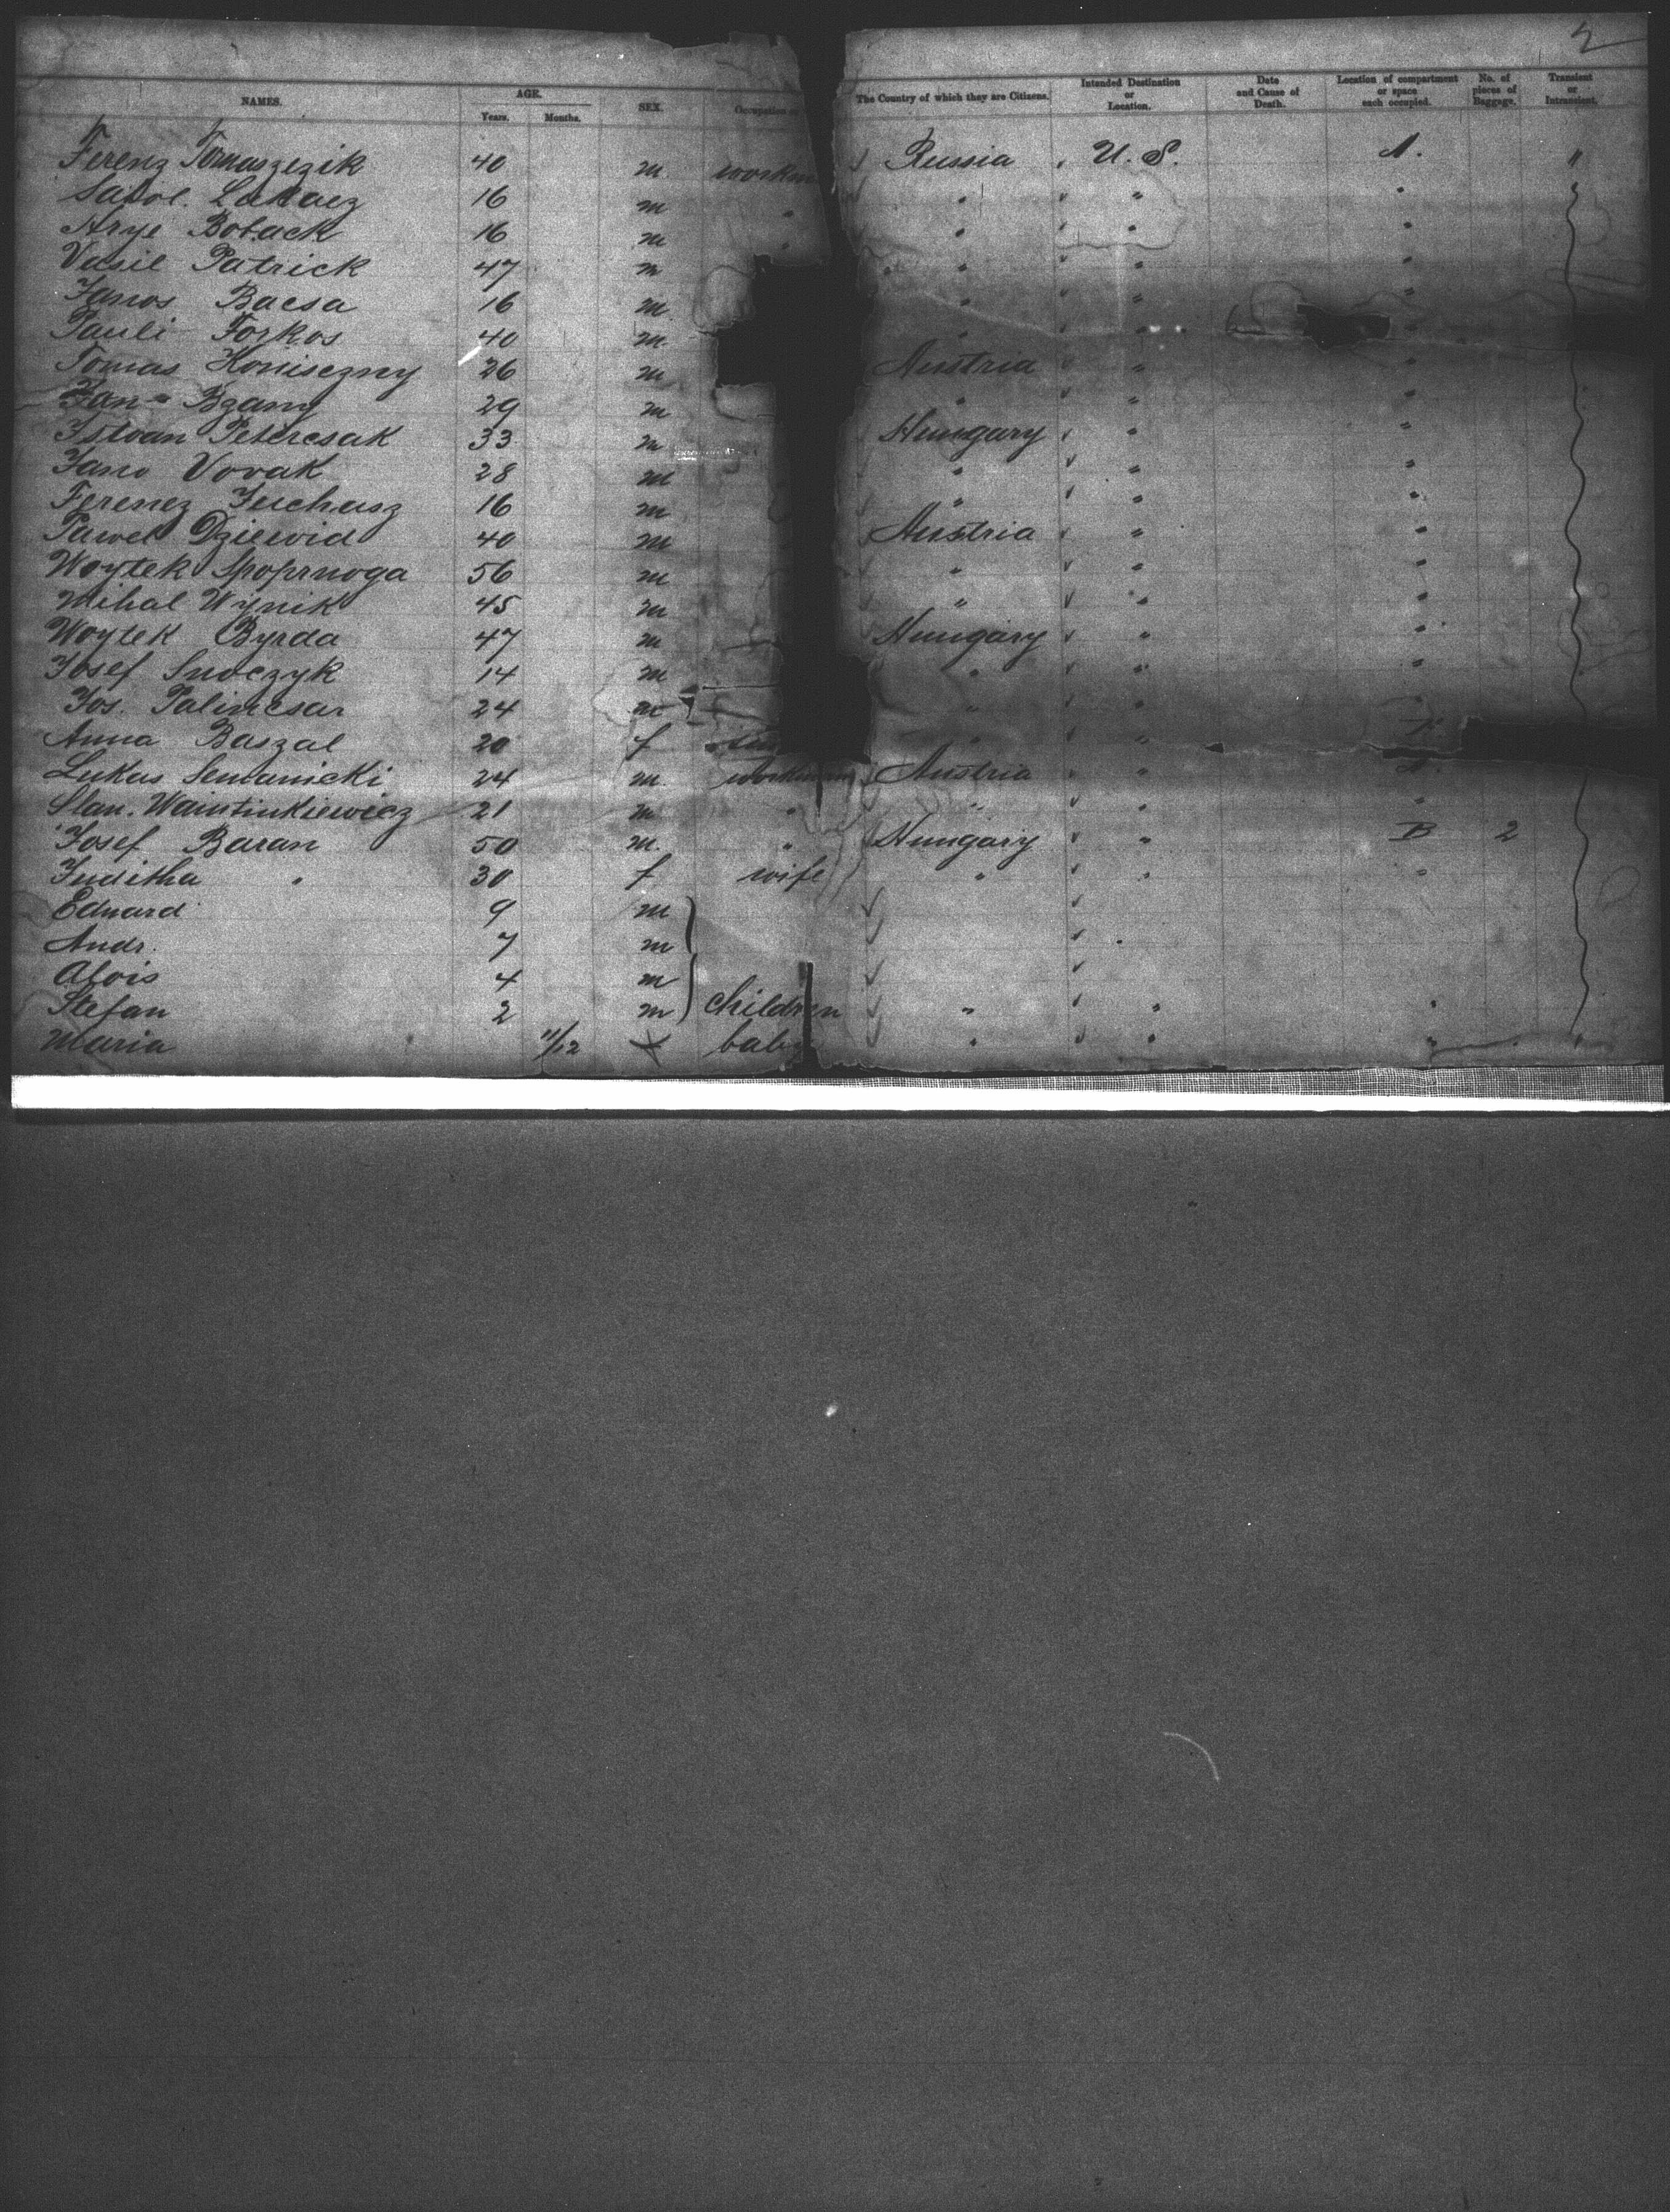 2
NAMES. AGE. Years. Months. SEX. Occupation The Country of which they are Citizens. Intended Destination or Location. Date and Cause of Death. Location of compartment or space each occupied. No. of pieces of Baggage. Transient or Intransient.
Ferenz Tomaszezik 40 m. Russia U. S. A. "
Lukacz 16 m " " "
Boback 16 m " " "
Vasil Patrick 47 m " " "
Janos Bacsa 16 m " " "
Pauli Forkos 40 m " "
Tomas Konisezny 26 m Austria " "
Jan Bzany 29 m " " "
Istvan Petercsak 33 m Hungary " "
Jano Vovak 28 m " " "
Ferenez 16 m " " "
Pawel Dziewid 40 m Austria " "
Woytek 56 m " " "
Mihal Wynik 45 m " " "
Woytek Byrda 47 m Hungary " "
Josef 14 m " " "
Jos. Palincsar 24 m " " "
Anna Baszal 20 f " "
Lukas Semanicki 24 m. workman Austria "
Stan. 21 m " " " "
Josef Baran 50 m. " Hungary " B 2
Juditha " 30 f wife " " "
Eduard 9 m
Andr. 7 m
Alois 4 m
Stefan 2 m children " " "
Maria 11/12 baby " " "